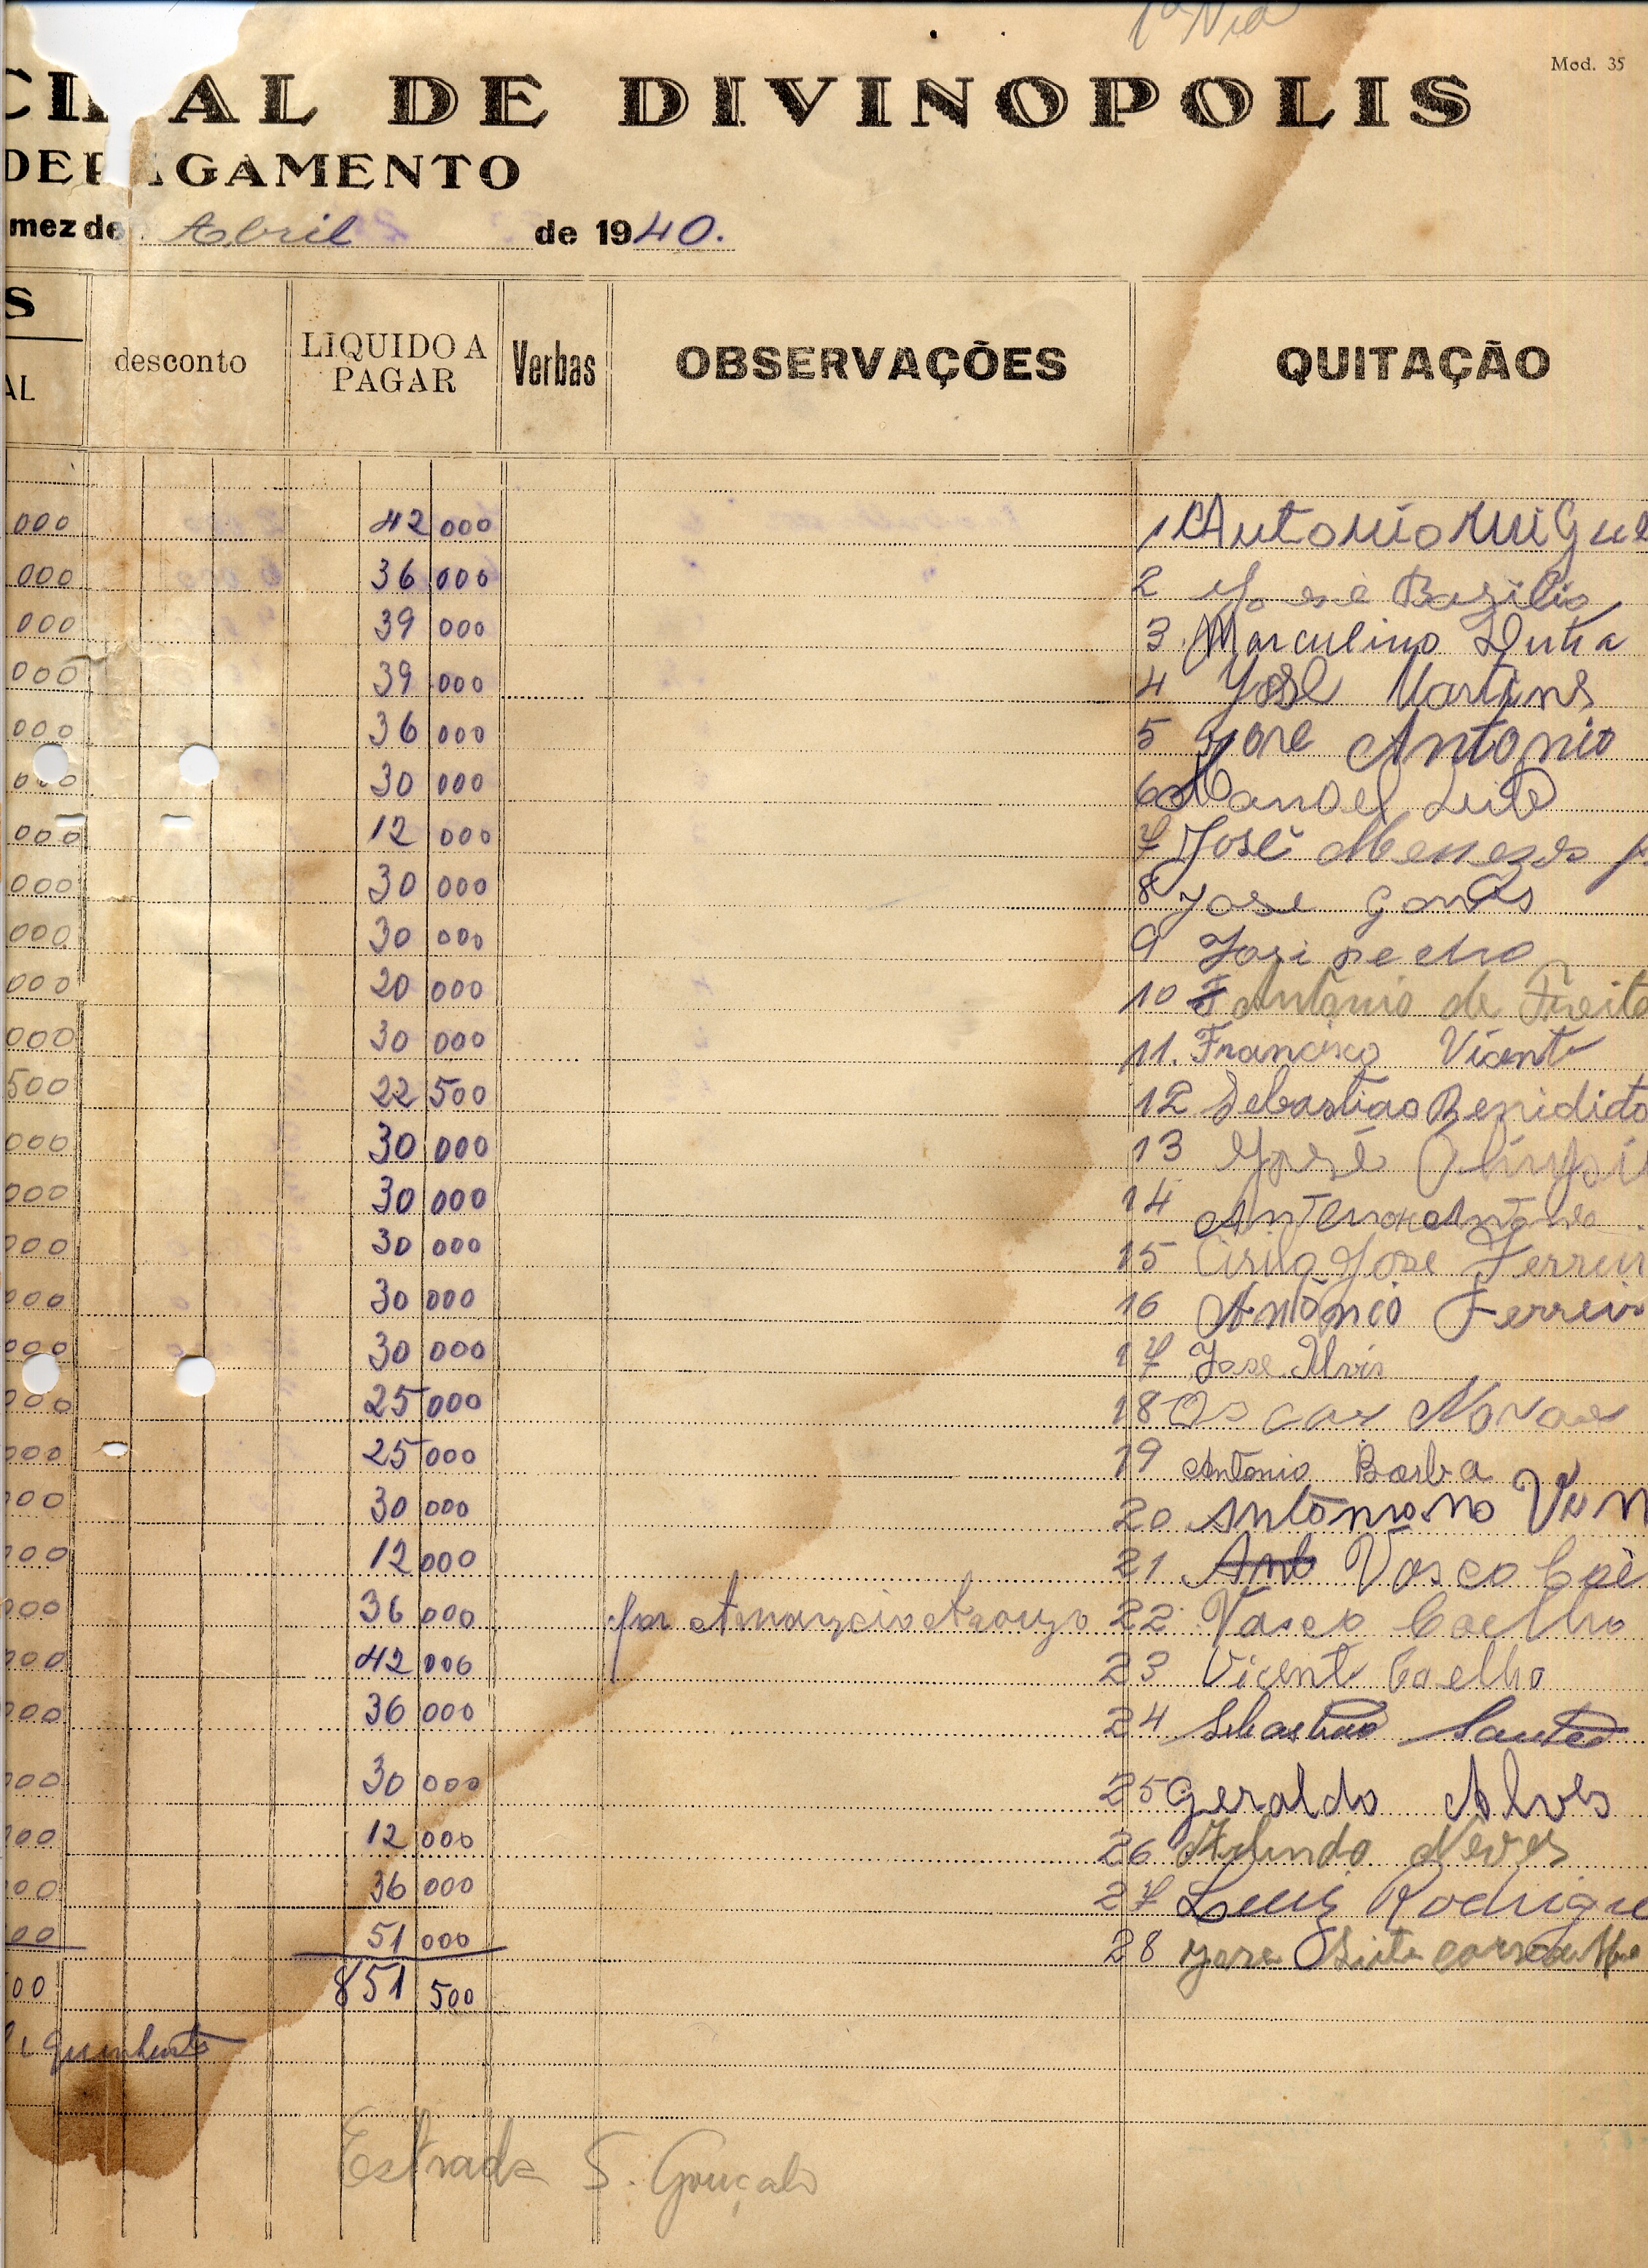 1ª Via
Mod. 35
CIPAL DE DIVINOPOLIS
DE PAGAMENTO
mez de Abril de 1940.
S
AL desconto LIQUIDO A PAGAR Verbas OBSERVAÇÕES QUITAÇÃO
000 42 000 1 Antonio Migue
000 36 000 2 José Basilio
000 39 000 3 Marculino Dutra
000 39 000 4 José Martins
000 36 000 5 José Antonio
000 30 000 6 Manoel Leite
000 12 000 7 José Menezes
000 30 000 8 Jose Gomes
000 30 000 9
000 20 000 10 Antônio de Freita
000 30 000 11. Francisco Vicente
500 22 500 12 Sebastiao Benidito
000 30 000 13 José
000 30 000 14 Antenor Antonio
000 30 000 15 Cirilo Jose Ferreir
000 30 000 16 Antônio Ferreir
000 30 000 17 Jose Alvis
000 25 000 18 Oscar Novaes
000 25 000 19 Antonio Barba
000 30 000 20
000 12 000 21 Ant Vasco Coe
000 36 000 por 22 Vasco Coelho
000 42 000 23 Vicente Coelho
000 36 000 24 Sebastião Santos
000 30 000 25 Geraldo Alves
000 12 000 26 Arlindo Neves
000 36 000 27 Luiz Rodrigue
00 51 000 28
00 851 500
quinhentos
Estrada S. Gonçalo